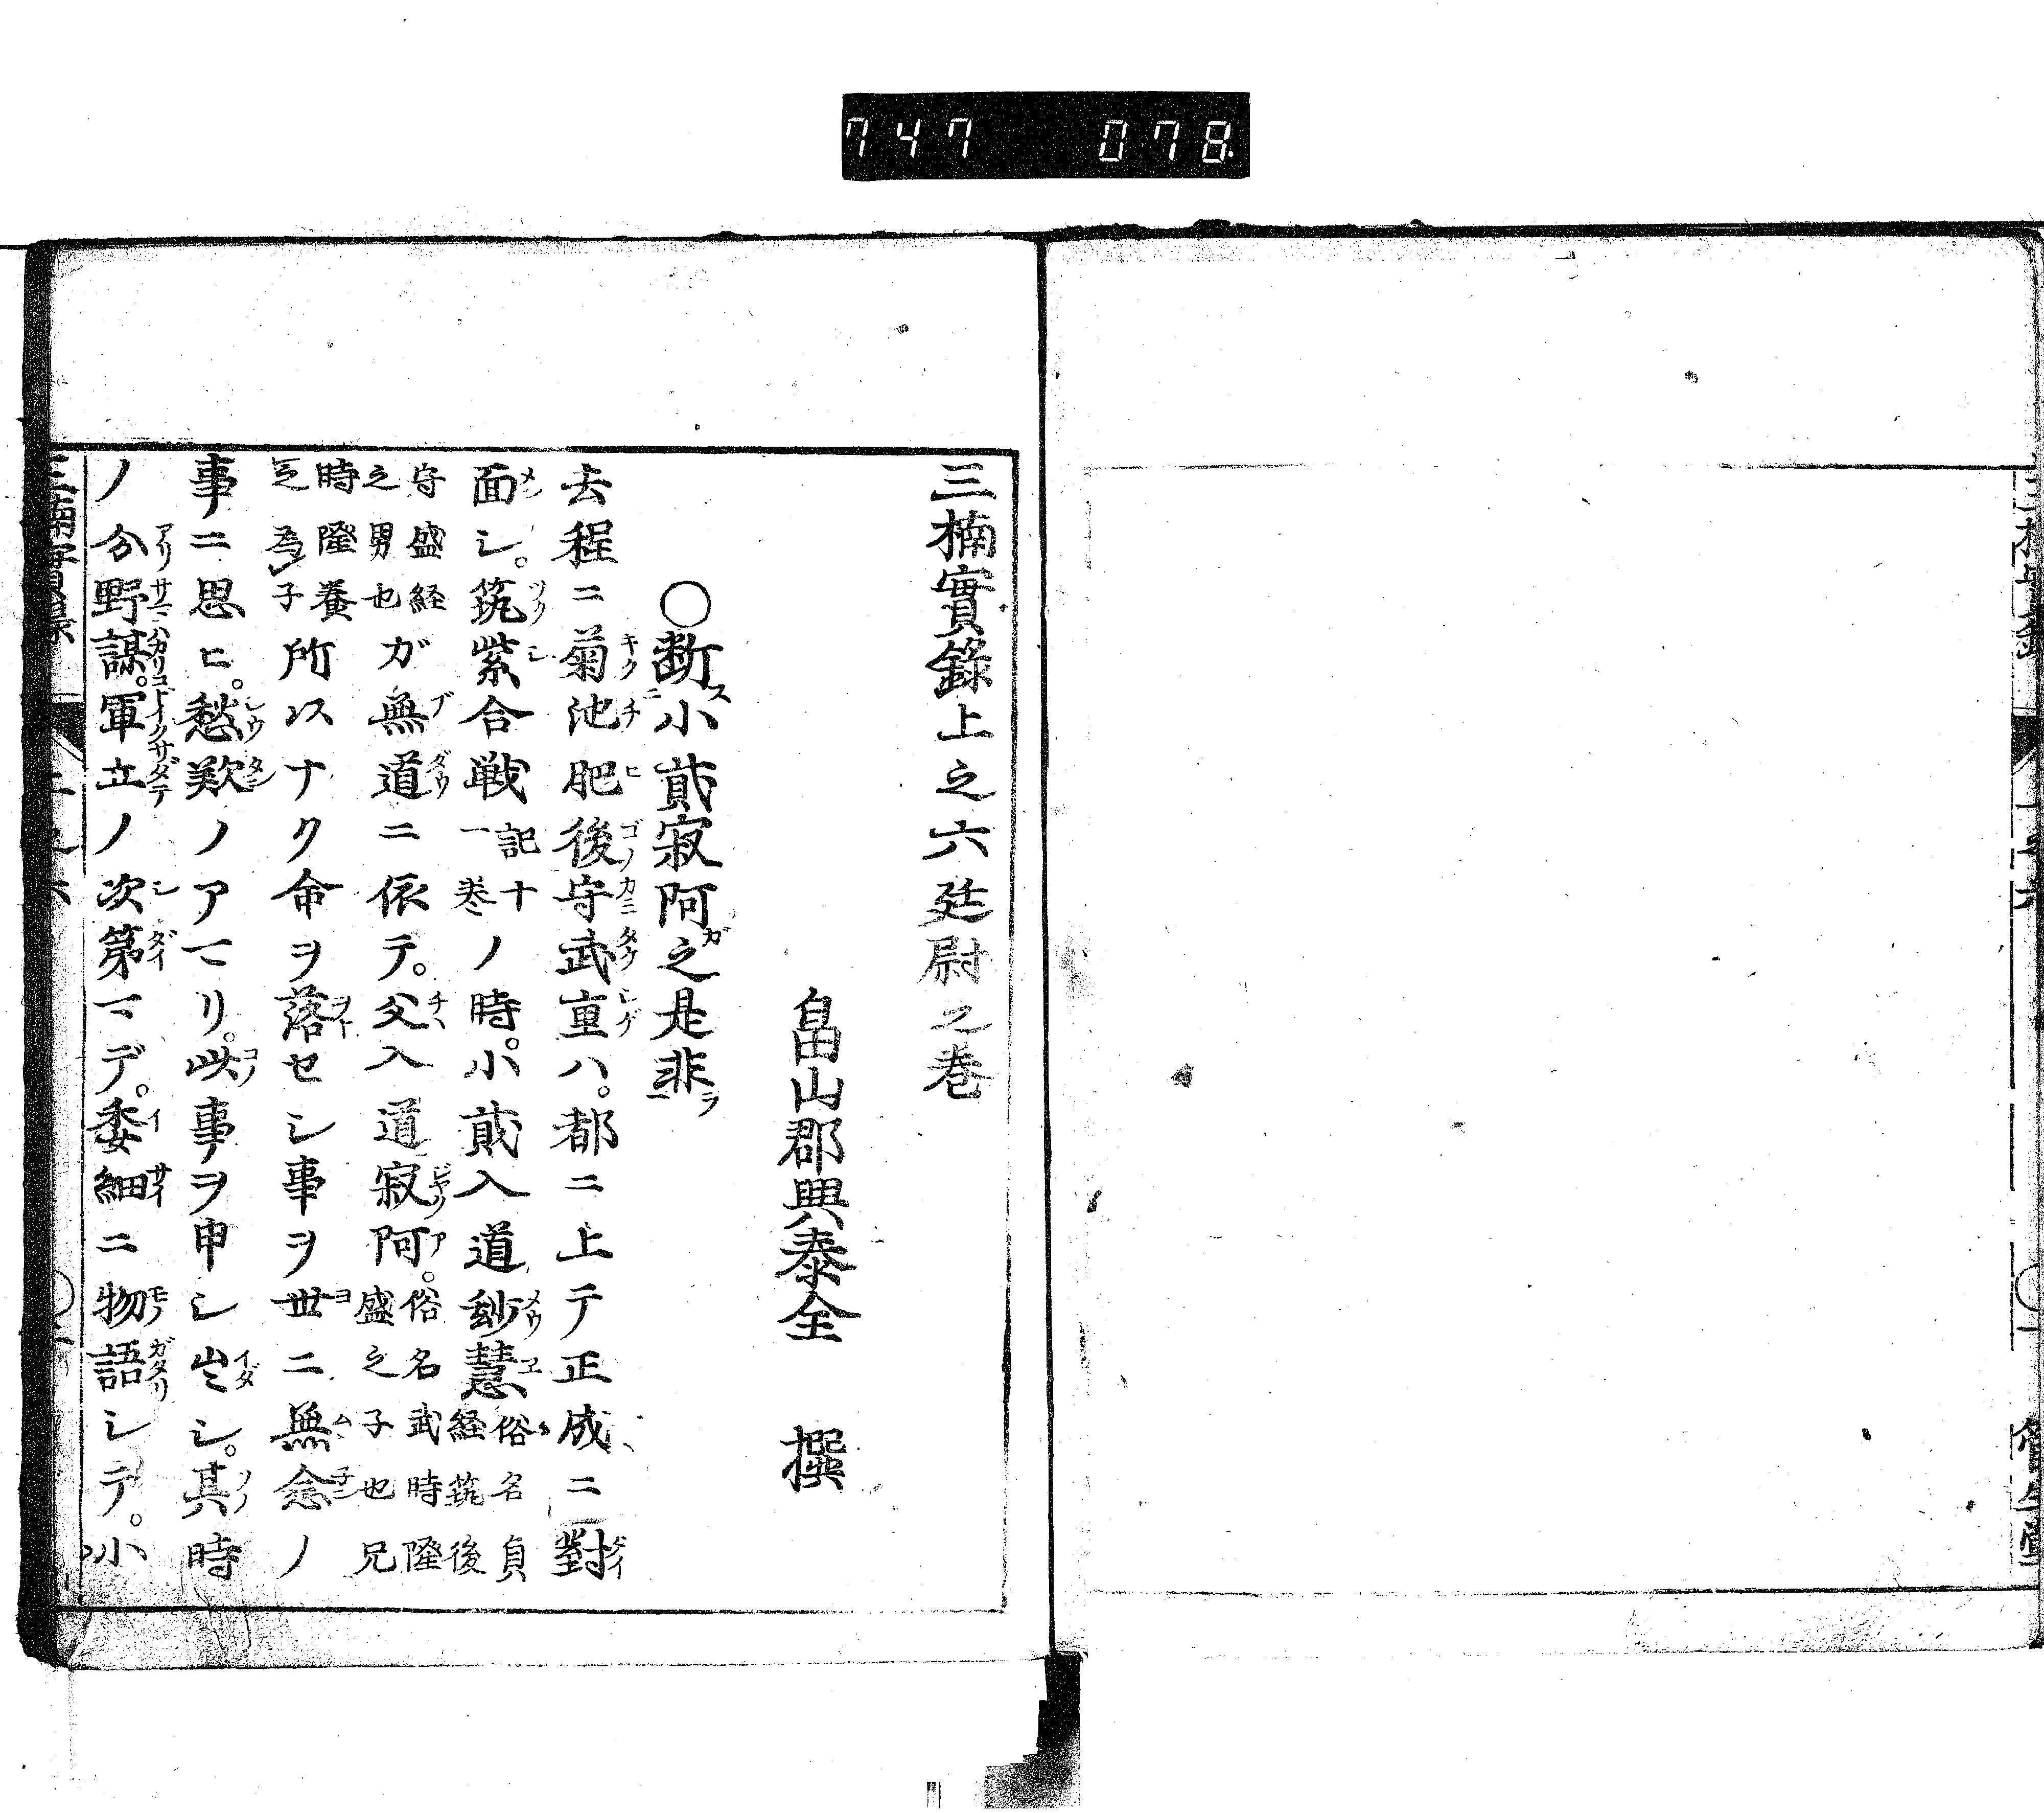 747 078
三楠實錄上之六廷尉之巻
畠山郡興泰全 撰
〇断ス小貳寂阿ガ之是非ヲ
去程ニ菊池肥後守武重ハ。都ニ上テ正成ニ對
面シ。筑紫合戦記十一巻ノ時。小貳入道妙慧俗名貞経筑後
守盛経之男也ガ無道ニ依テ。父入道寂阿。俗名武時隆盛之子也兄
時隆養之為子所以ナク命ヲ落セシ事ヲ世ニ無念ノ
事ニ思ヒ。愁歎ノアマリ。此事ヲ申シ出シ。其時
ノ分野謀。軍立ノ次第マデ。委細ニ物語シテ。小
三楠實錄
上之六